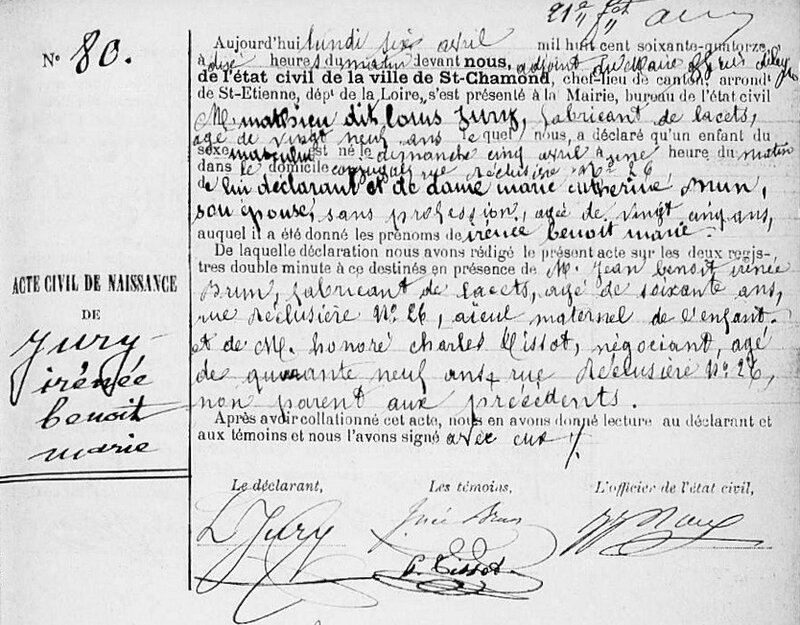 Nº 80.
Aujourd'hui lundi six avril mil huit cent soixante-quatorze,
à dix heures du matin devant nous, adjoint du Maire officier délégué
de l'état civil de la ville de St-Chamond, chef-lieu de canton, arrond
de St-Etienne, dépt de la Loire, s'est présenté à la Mairie, bureau de l'état civil
M. mathieu dit louis Jury, fabricant de lacets,
âgé de vingt neuf ans lequel nous a déclaré qu'un enfant du
sexe masculin est né le dimanche cinq avril à une heure du matin
dans le domicile conjugal, rue Réclusière Nº 26
de lui déclarant et de dame marie catherine Brun,
son épouse, sans profession, agée de vingt cinq ans,
auquel il a été donné les prénoms de irénée benoit marie.
De laquelle déclaration nous avons rédigé le présent acte sur les deux regis-
tres double minute à ce destinés en présence de M. Jean benoit irénée
Brun, fabricant de lacets, agé de soixante ans,
rue Réclusière Nº 26, aïeul maternel de l'enfant.
et de M. honoré charles Tissot, négociant, agé
de quarante neuf ans, rue Réclusière Nº 26,
non parent aux précédents.
Après avoir collationné cet acte, nous en avons donné lecture au déclarant et
aux témoins et nous l'avons signé avec eux
ACTE CIVIL DE NAISSANCE
DE
Jury
irénée
benoit
marie
Le déclarant, Les témoins, L'officier de l'état civil,
L Jury
Brun
C. Tissot